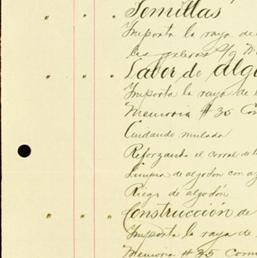 " " " Semillas
Importa la raya de
las
" " " Labor de algo
Importa la raya de l
Memoria # 35 Com
Cuidando mulada
Reforzando el corral de l
Limpia de algodon con a
Riego de algodon
" " " Construcción de
Importa la raya de
Memoria # 35 Com